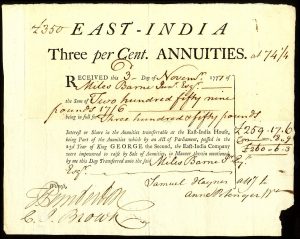 £350 EAST-INDIA
Three per Cent. ANNUITIES. at 74¼
RECEIVED this 3 Day of Novemr. 
Miles Barne Esqr.
the Sum of Two hundred fifty nine
pounds 17/6
being in full for Three hundred fifty pounds
Interest or Share in the Annuities transferable at the East-India House, £259.17.6
being Part of the Annuities which by an Act of Parliament, passed in the
Year of King GEORGE the Second, the East-India Company
were impowered to raise by Sale of Annuities, in Manner therein mentioned
by me this Day Transferred unto the said Miles Barne
Esqr.
Witness, Samuel Haynes
Pemberton
C. J. Brown